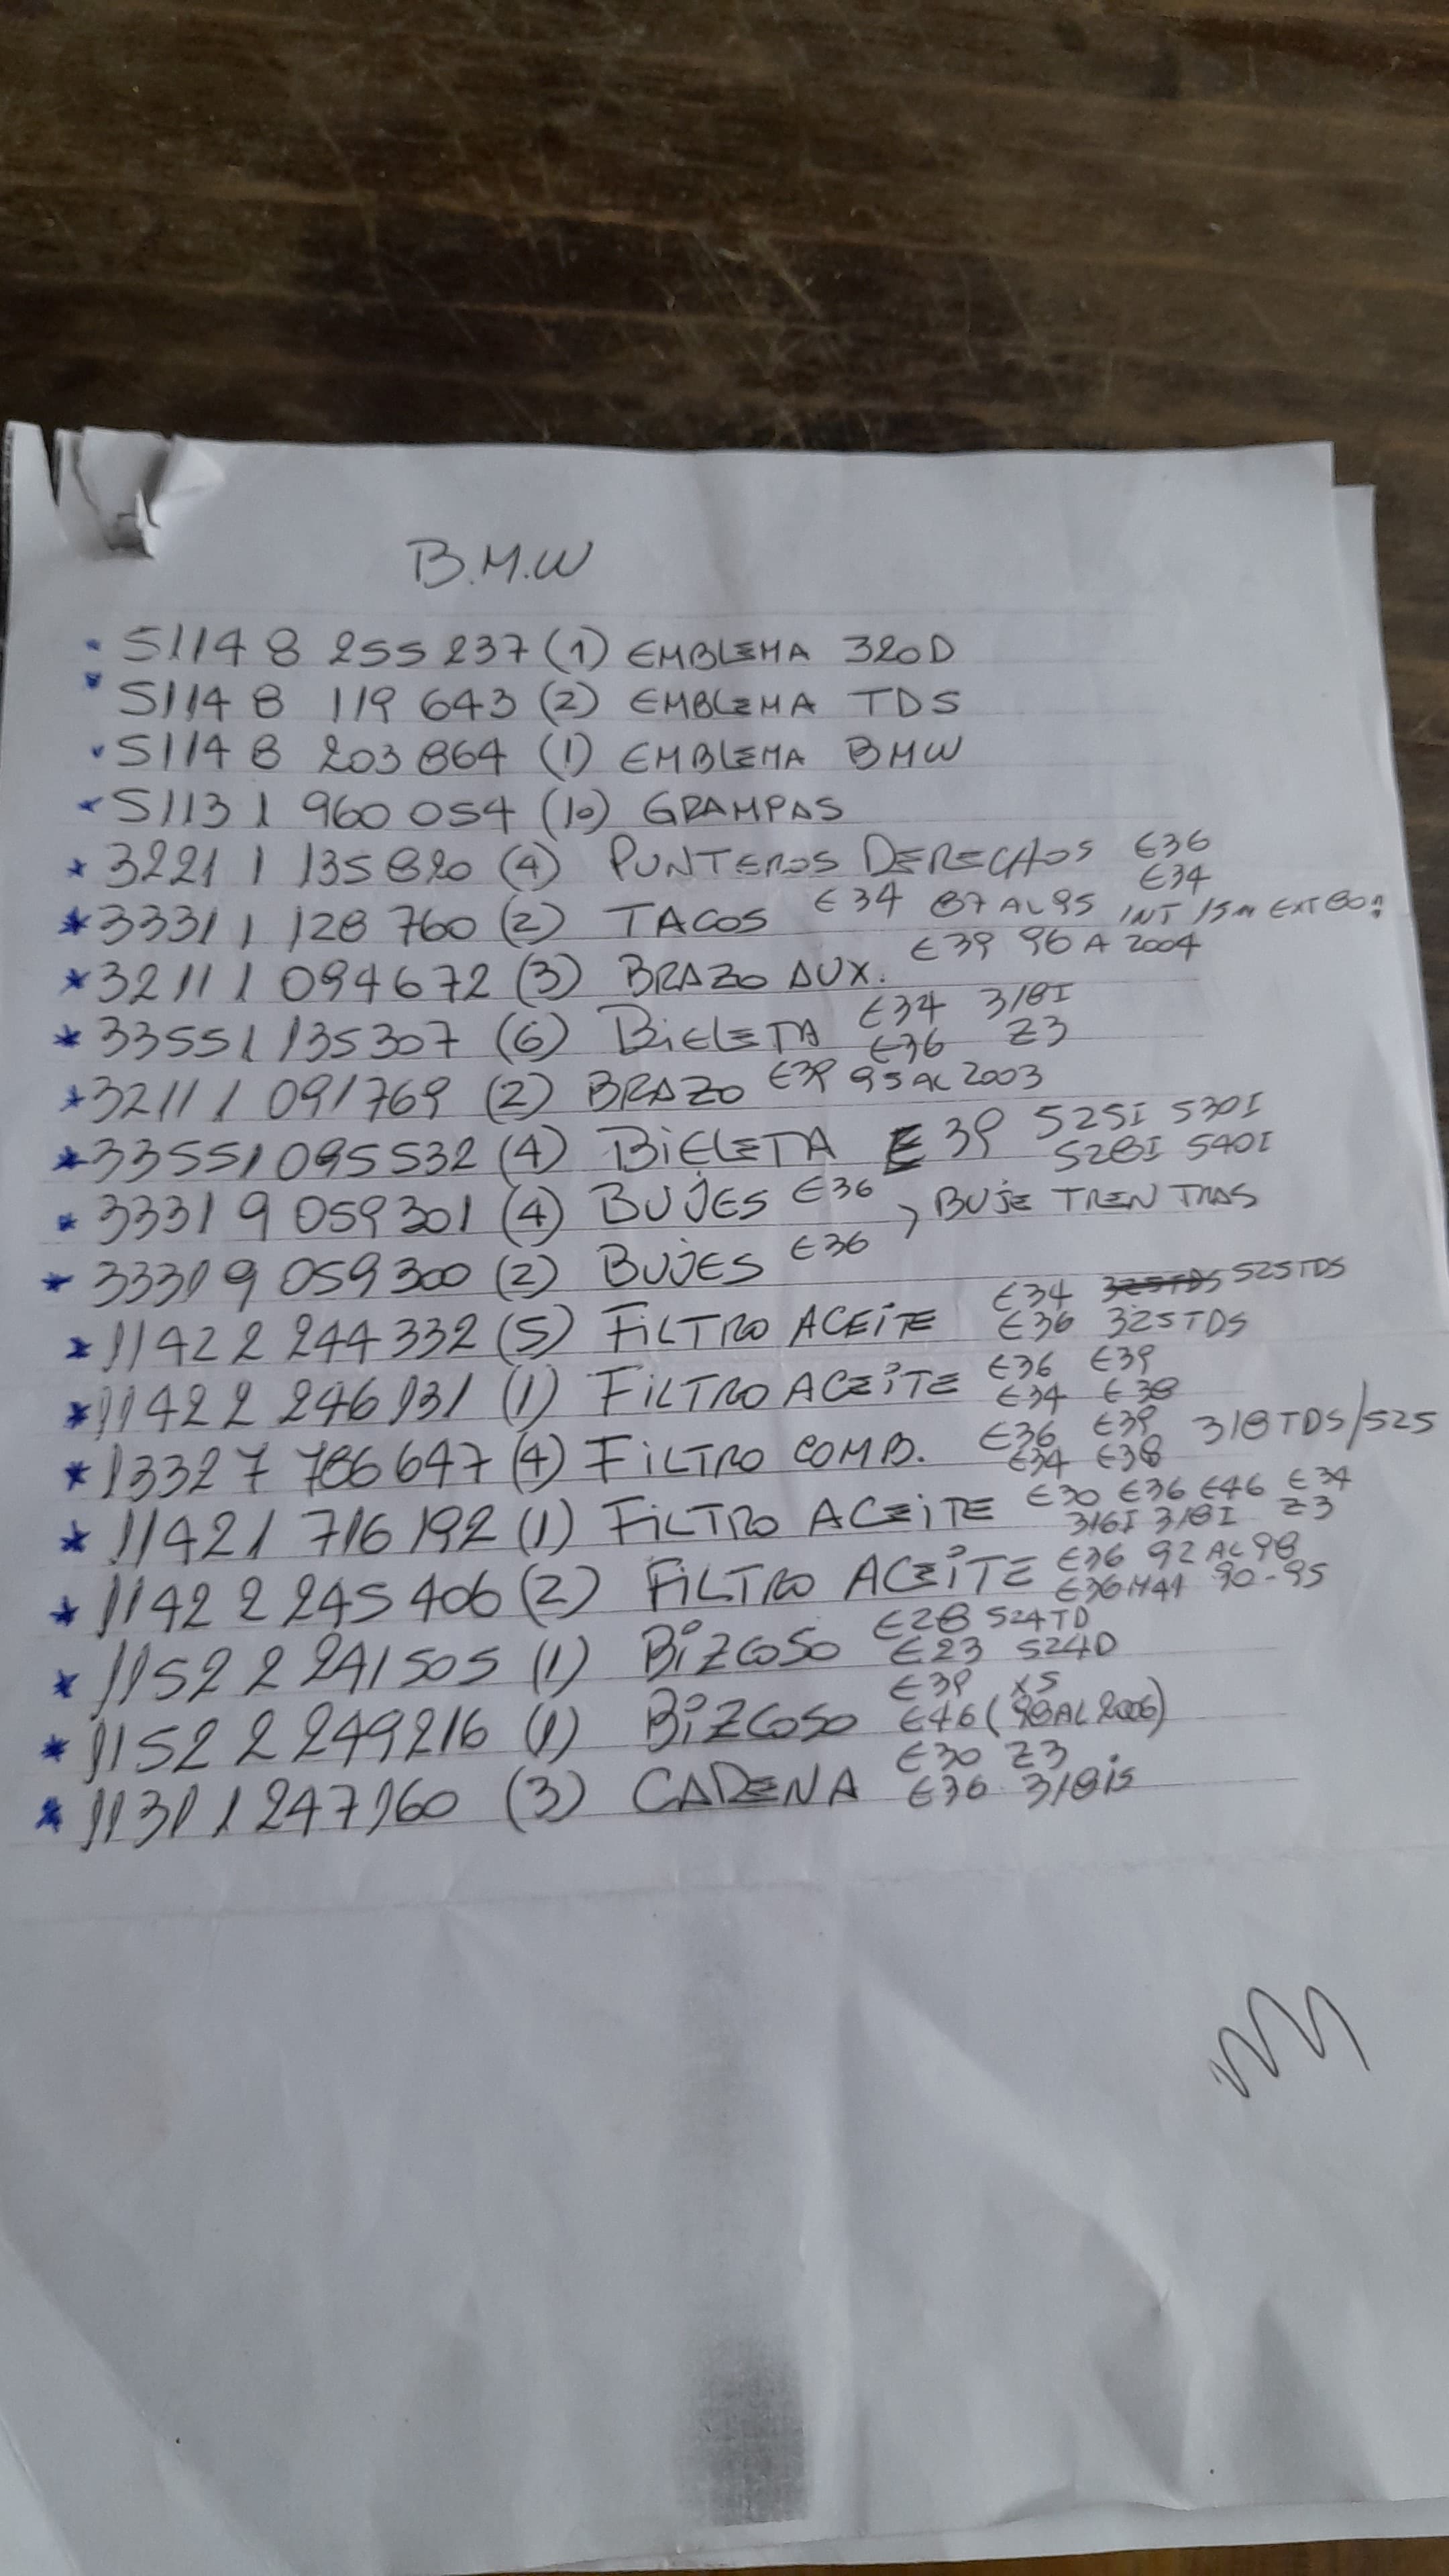 B.M.W
51148 255 237 (1) EMBLEMA 320D
51148 119 643 (2) EMBLEMA TDS
51148 203 864 (1) EMBLEMA BMW
51131 960 054 (10) GRAMPAS
32211 135 820 (4) PUNTEROS DERECHOS E36
E34
33311 128 760 (2) TACOS E34 87 AL 95 INT 15m EXT 60m
32111 094672 (3) BRAZO AUX. E39 96 A 2004
33551 135307 (6) BIELETA E34 318I
E36 Z3
32111 091769 (2) BRAZO E39 95 AL 2003
33551 095532 (4) BIELETA E39 525I 530I
528I 540I
33319 059301 (4) BUJES E36
, BUJE TREN TRAS
33319 059300 (2) BUJES E36
11422 244332 (5) FILTRO ACEITE E34 325TDS 525TDS
E36 325TDS
11422 246131 (1) FILTRO ACEITE E36 E39
E34 E38
13327 786647 (4) FILTRO COMB. E36 E39 318TDS/525
E34 E38
11421 716192 (1) FILTRO ACEITE E30 E36 E46 E34
316I 318I Z3
11422 245406 (2) FILTRO ACEITE E36 92 AL 98
E36 M41 90-95
11522 241505 (1) BIZCOSO E28 524TD
E23 524D
11522 249216 (1) BIZCOSO E39 X5
E46 (98 AL 2006)
11311 247160 (3) CADENA E30 Z3
E36 318is